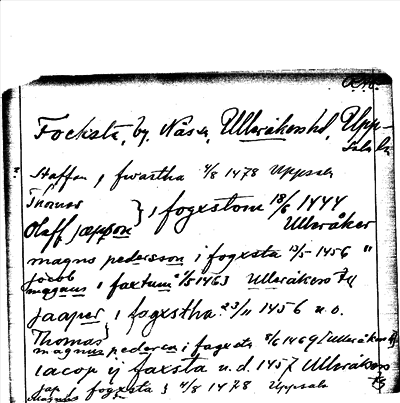 Focksta, by, Nåsn, Ulleråkers hd, Upp-
sala l.
Staffan, fwartha 4/8 1478 Uppsala
Thomas
Olaff jæpson } i fogxstom 18/6 1444 Ulleråker
magns pedersson i fogxsta 13/5 1456 "
jacob
magnus i faxtum 4/5 1463 Ulleråkers hd
jaaper i fogxstha 23/11 1456 u.o.
Thomas
magnus pederson i fogxsta 8/6 1469 Ulleråkers
iacop ij faxsta u.d. 1457 Ulleråkers
hd
jap fogxsta 4/8 1478 Uppsala
magnus